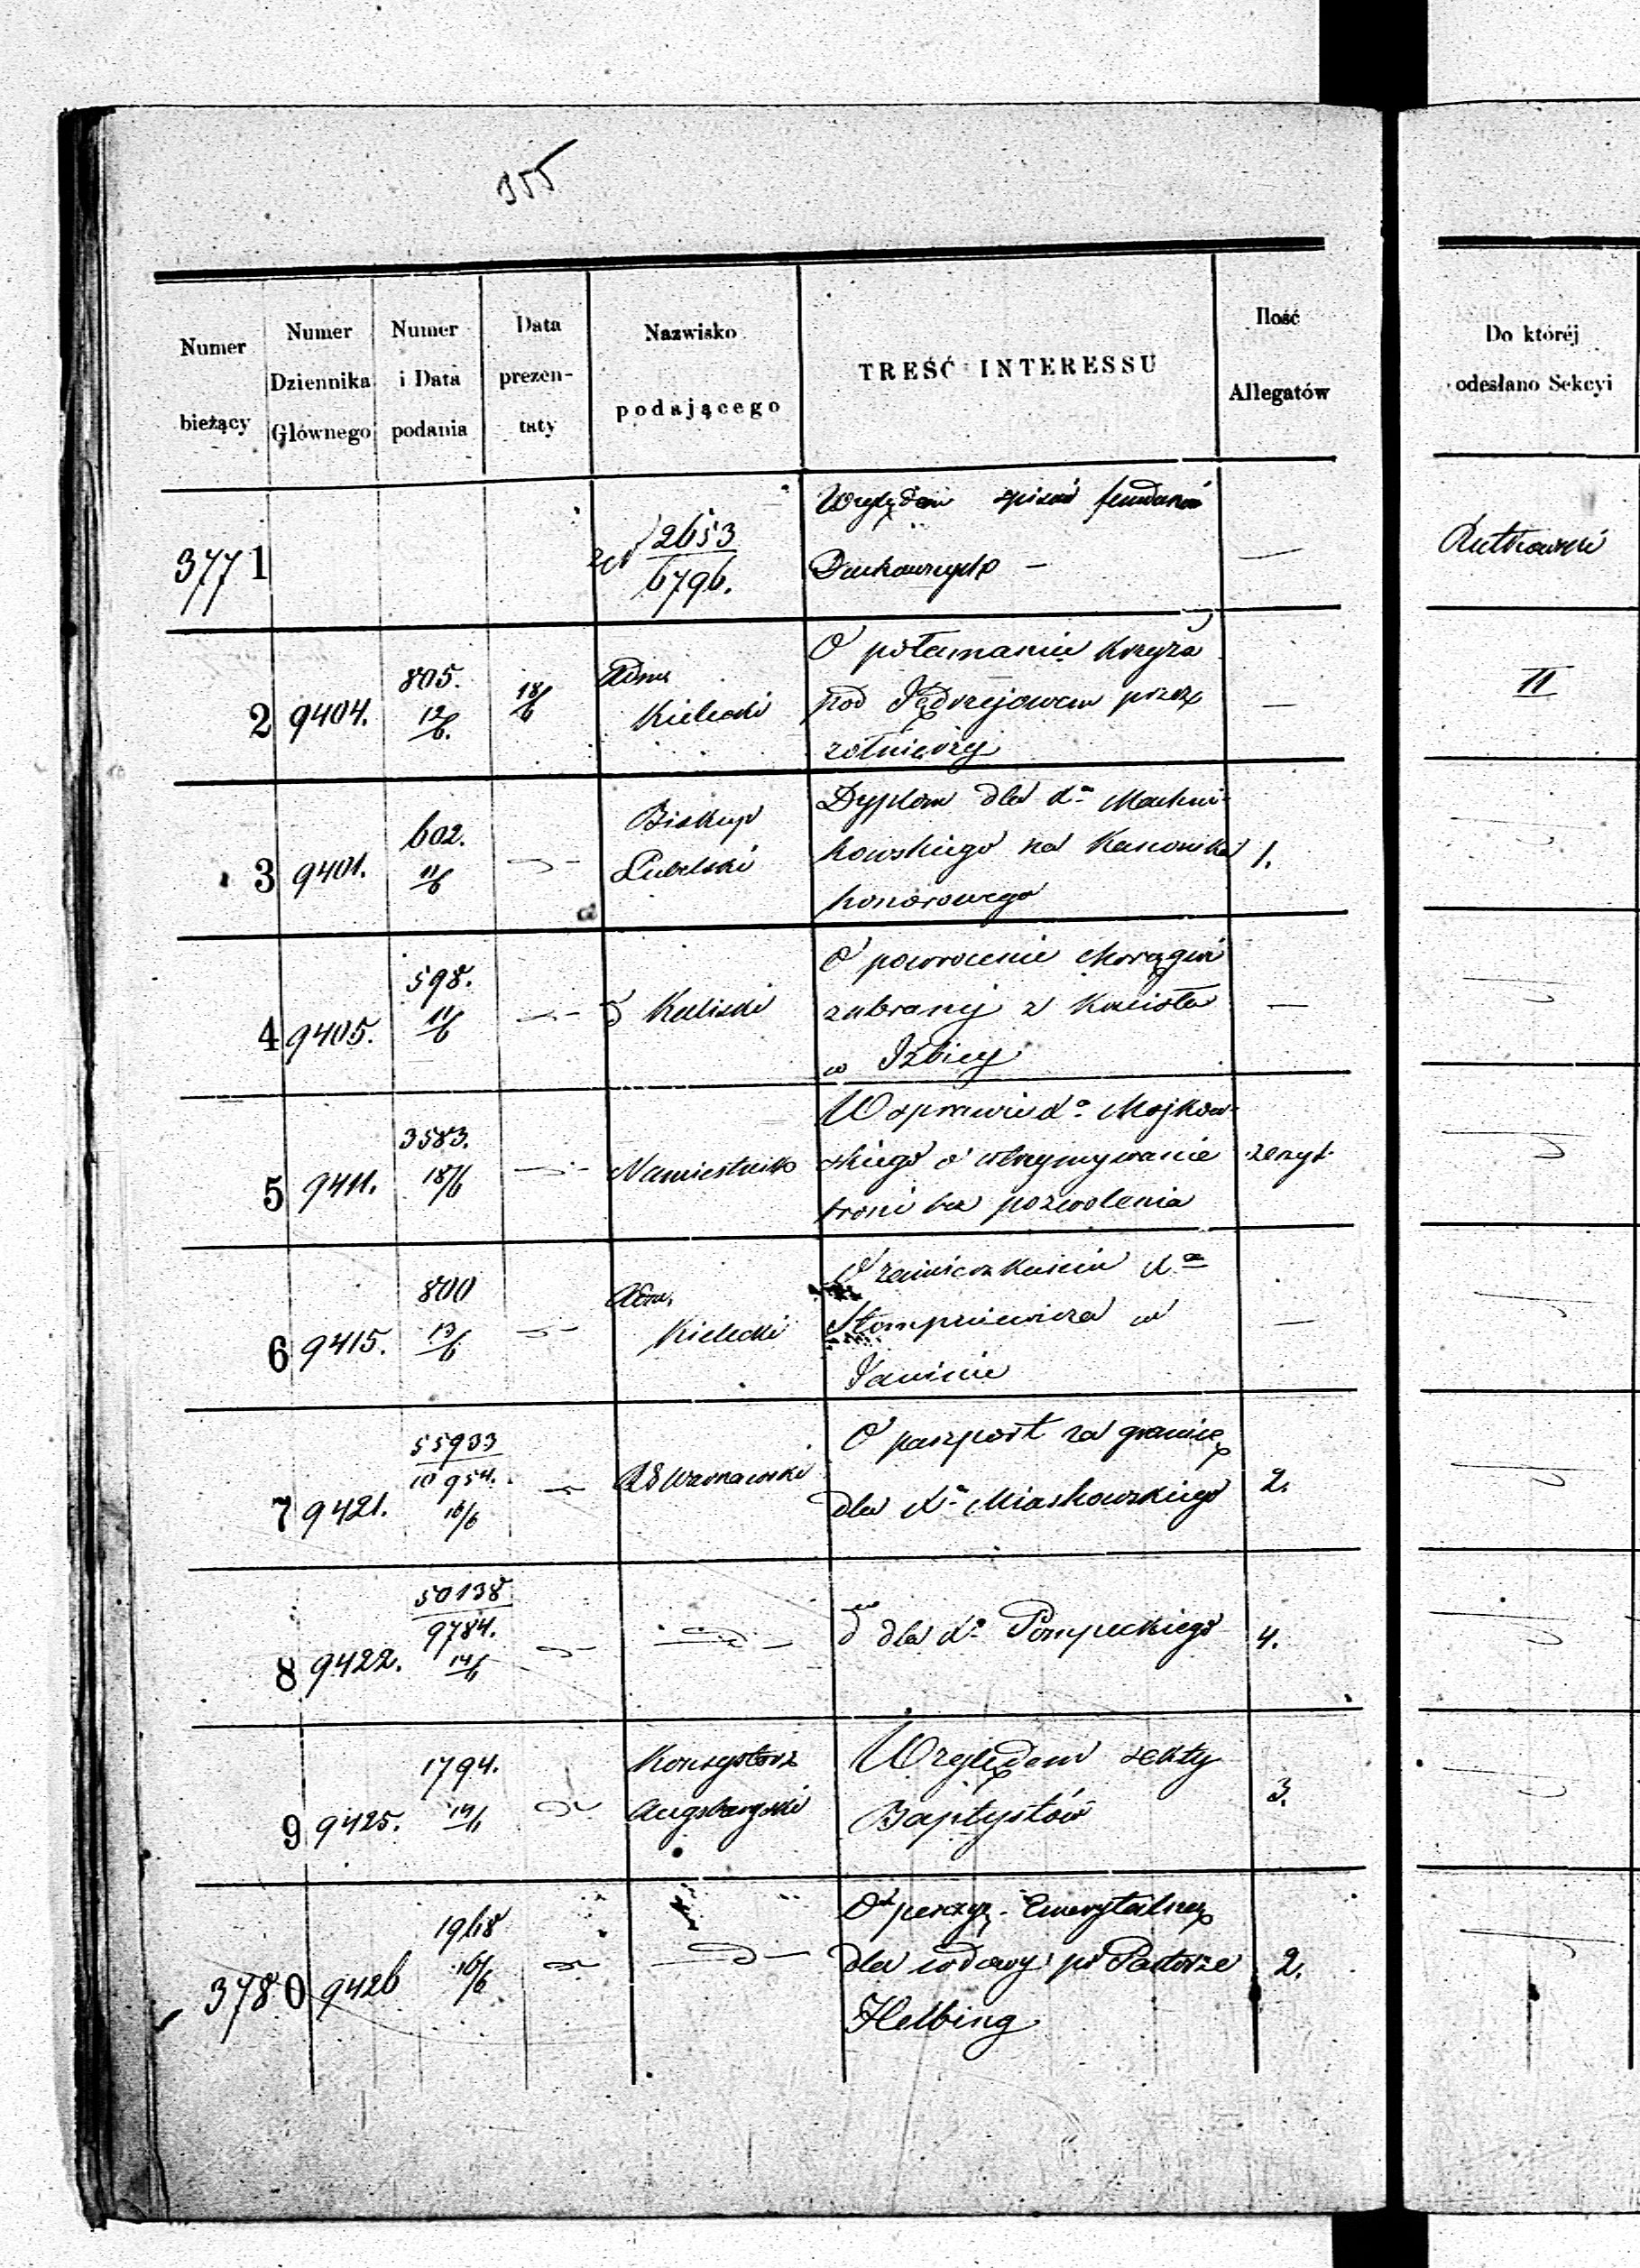 355
Numer bieżący
Numer Dziennika Głównego
Numer i Data podania
Data prezentaty
Nazwisko podającego
TREŚĆ INTERESSU
Ilość Allegatów
Do któréj odesłano Sekcyi
3771
2653
6796.
Względem spisów
Duchownych –
—
Rutkowski
2
9404.
805.
12/6.
18/6
Adm.
Kielecki
O połamaniu krzyża
pod Jędrzejowem przez
żołnierzy
—
II
3
9401.
602.
11/6
Biskup
Lubelski
Dyplom dla Xa Machni-
kowskiego na Kanonika
honorowego
1.
4
9405.
598.
11/6
Kaliski
O powrócenie chorągwi
zabranej z Kościoła
w Izbicy
—
5
9411.
3583.
18/6
Namiestnik
W sprawie Xa Mojkow-
skiego o utrzymywanie
broni bez pozwolenia
zeszyt
6
9415.
800
13/6
Adm.
Kielecki
O zamieszkaniu Xa
Stompniewicza w
Janinie
—
7
9421.
55933
10954.
16/6
RG Warszawski
O paszport za granicę
dla Xa Miaskowskiego
2.
8
9422.
50138
9784.
14/6
do dla Xa Pompeckiego
4.
9
9425.
1794.
14/6
Konsystorz
Augsburgski
Względem sekty
Baptystów
3.
3780
9426
1968
16/6
O pensyę Emerytalną
dla wdowy po Pastorze
Helbing
2.